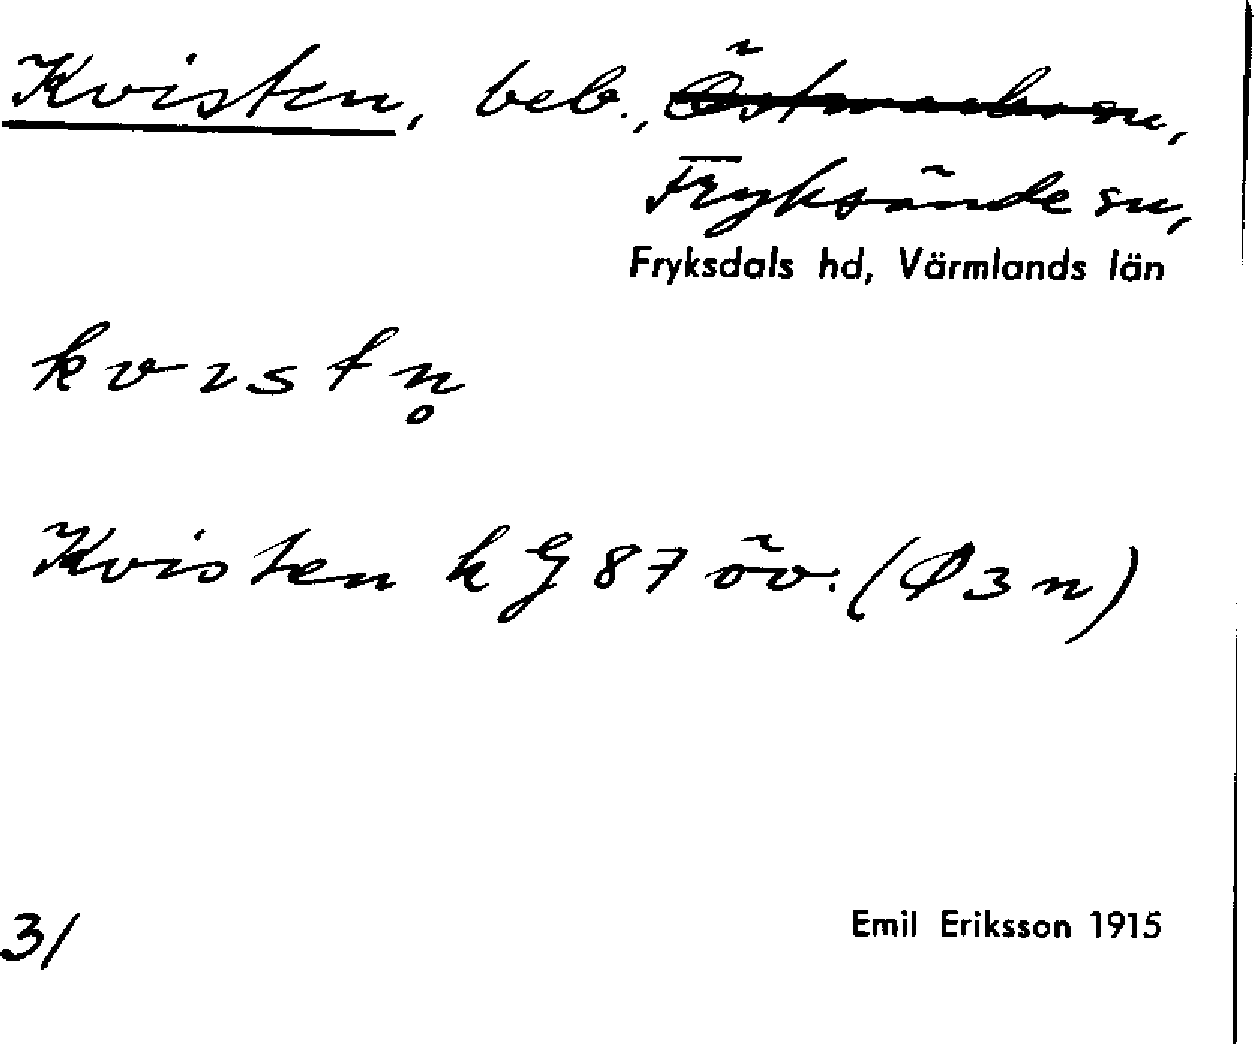 Kvisten, beb., Östmarks sn,
Fryksände sn,
Fryksdals hd, Värmlands län
kvıstn̥
Kvisten k G 87 öv. (Ø 3 n)
31
Emil Eriksson 1915